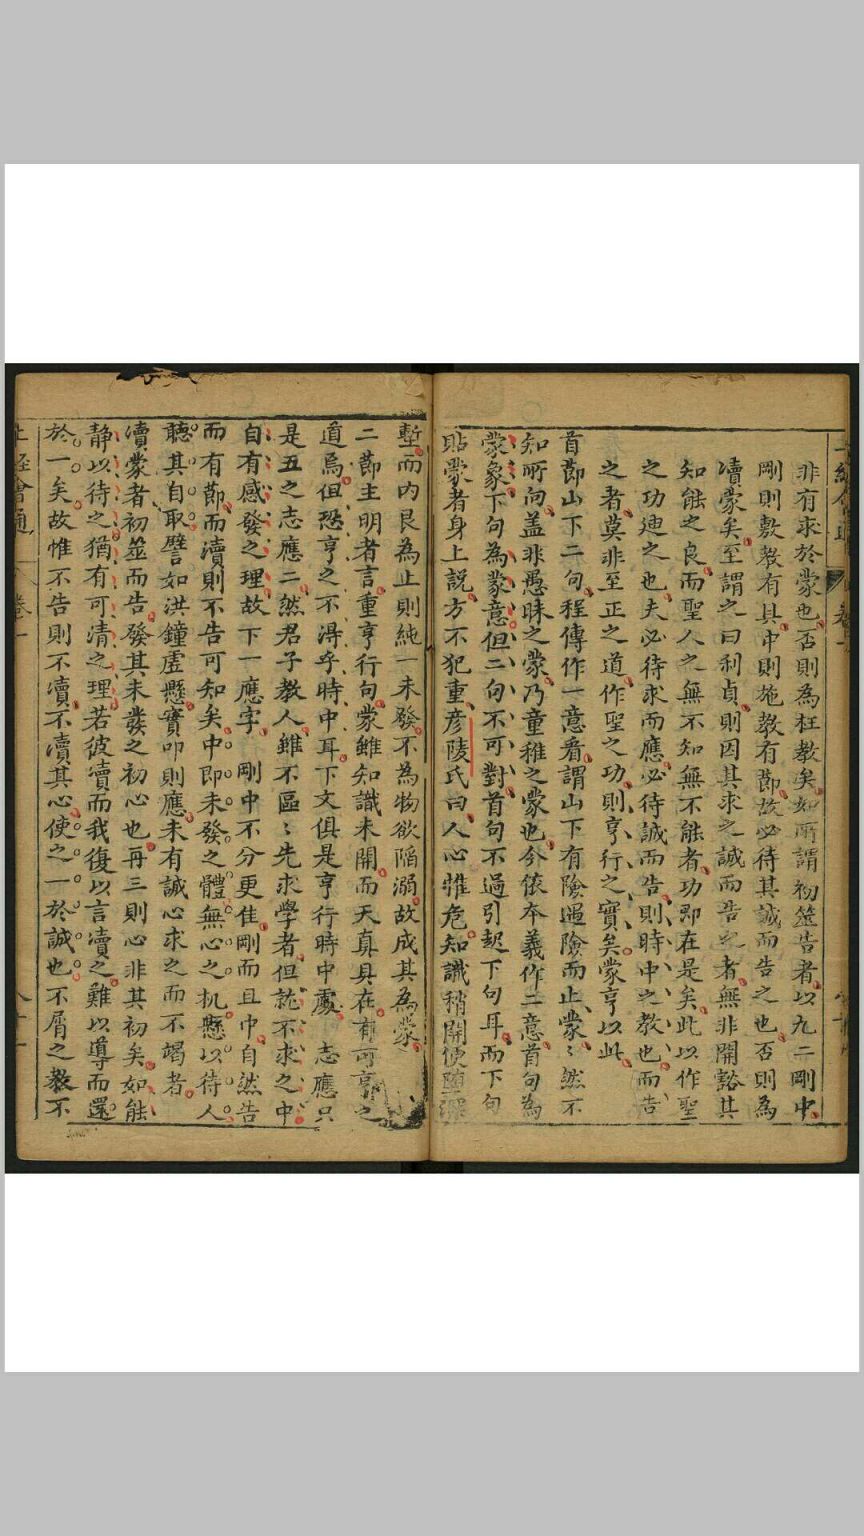 非有求於蒙也否則為枉教矣如所謂初筮告者以九二剛中
剛則敷教有具中則施教有節故必待其誠而告之也否則為
瀆蒙矣至謂之曰利貞則因其求之誠而告之者無非開谿其
知能之良而聖人之無不知無不能者功即在是矣此以作聖
之功迪之也夫必待求而應必待誠而告則時中之教也而告
之者莫非至正之道作聖之功則亨行之實矣蒙亨以此
首節山下二句程傳作一意看謂山下有險遇險而止蒙〻然不
知所向盖非愚昧之蒙乃童稚之蒙也今依本義作二意首句為
蒙象下句為蒙意但二句不可對首句不過引起下句耳而下句
貼蒙者身上説方不犯重彦陵氏曰人心惟危知識稍開便墮深
塹而内艮為止則純一未發不為物欲陷溺故成其為蒙
二節主明者言重亨行句蒙雖知識未開而天真具在有可亨之
道焉但恐亨之不得乎時中耳下文俱是亨行時中處 志應只
是五之志應二然君子教人雖不區〻先求學者但訑不求之中
自有感發之理故下一應字 剛中不分更佳剛而且中自然告
而有節而瀆則不告可知矣中即未發之體無心之机懸以待人
聽其自取譬如洪鐘虛懸實叩則應未有誠心求之而不竭者
瀆蒙者初筮而告發其未發之初心也再三則心非其初矣如能
静以待之猶有可清之理若彼瀆而我復以言瀆之難以導而還
於一矣故惟不告則不瀆不瀆其心使之一於誠也不屑之教不